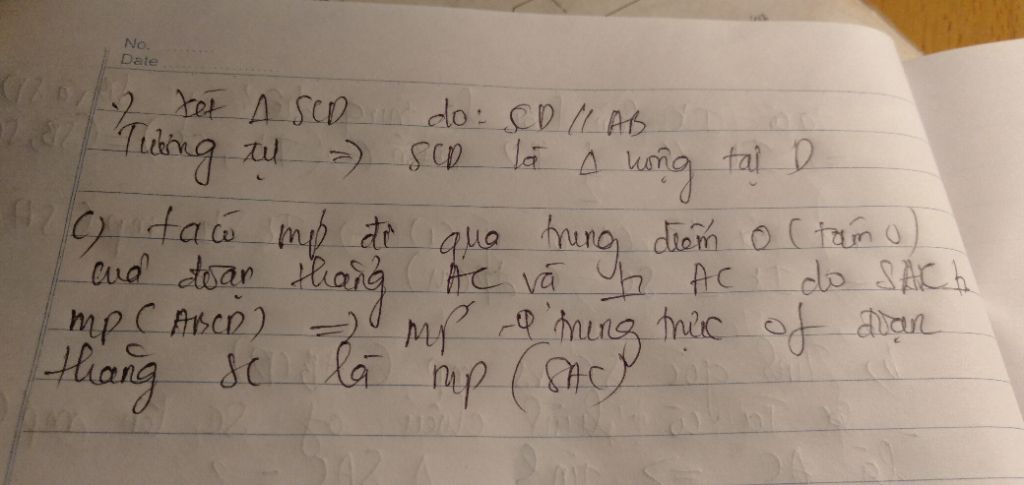 No.
Date
xét Δ SCD do: CD // AB
Tương tự => SCD là Δ vuông tại D
C) ta có mp đi qua trung điểm O (tâm O)
của đoạn thẳng AC và AC do SAC
mp (ABCD) => mp trung trực of đoạn
thẳng SC là mp (SAC)